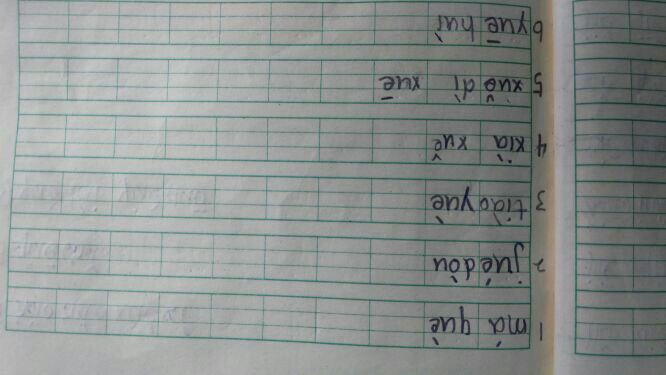 1 má què
2 juédòu
3 tiàoyuè
4 xià xuě
5 xuě dì xuē
6 yuē huì